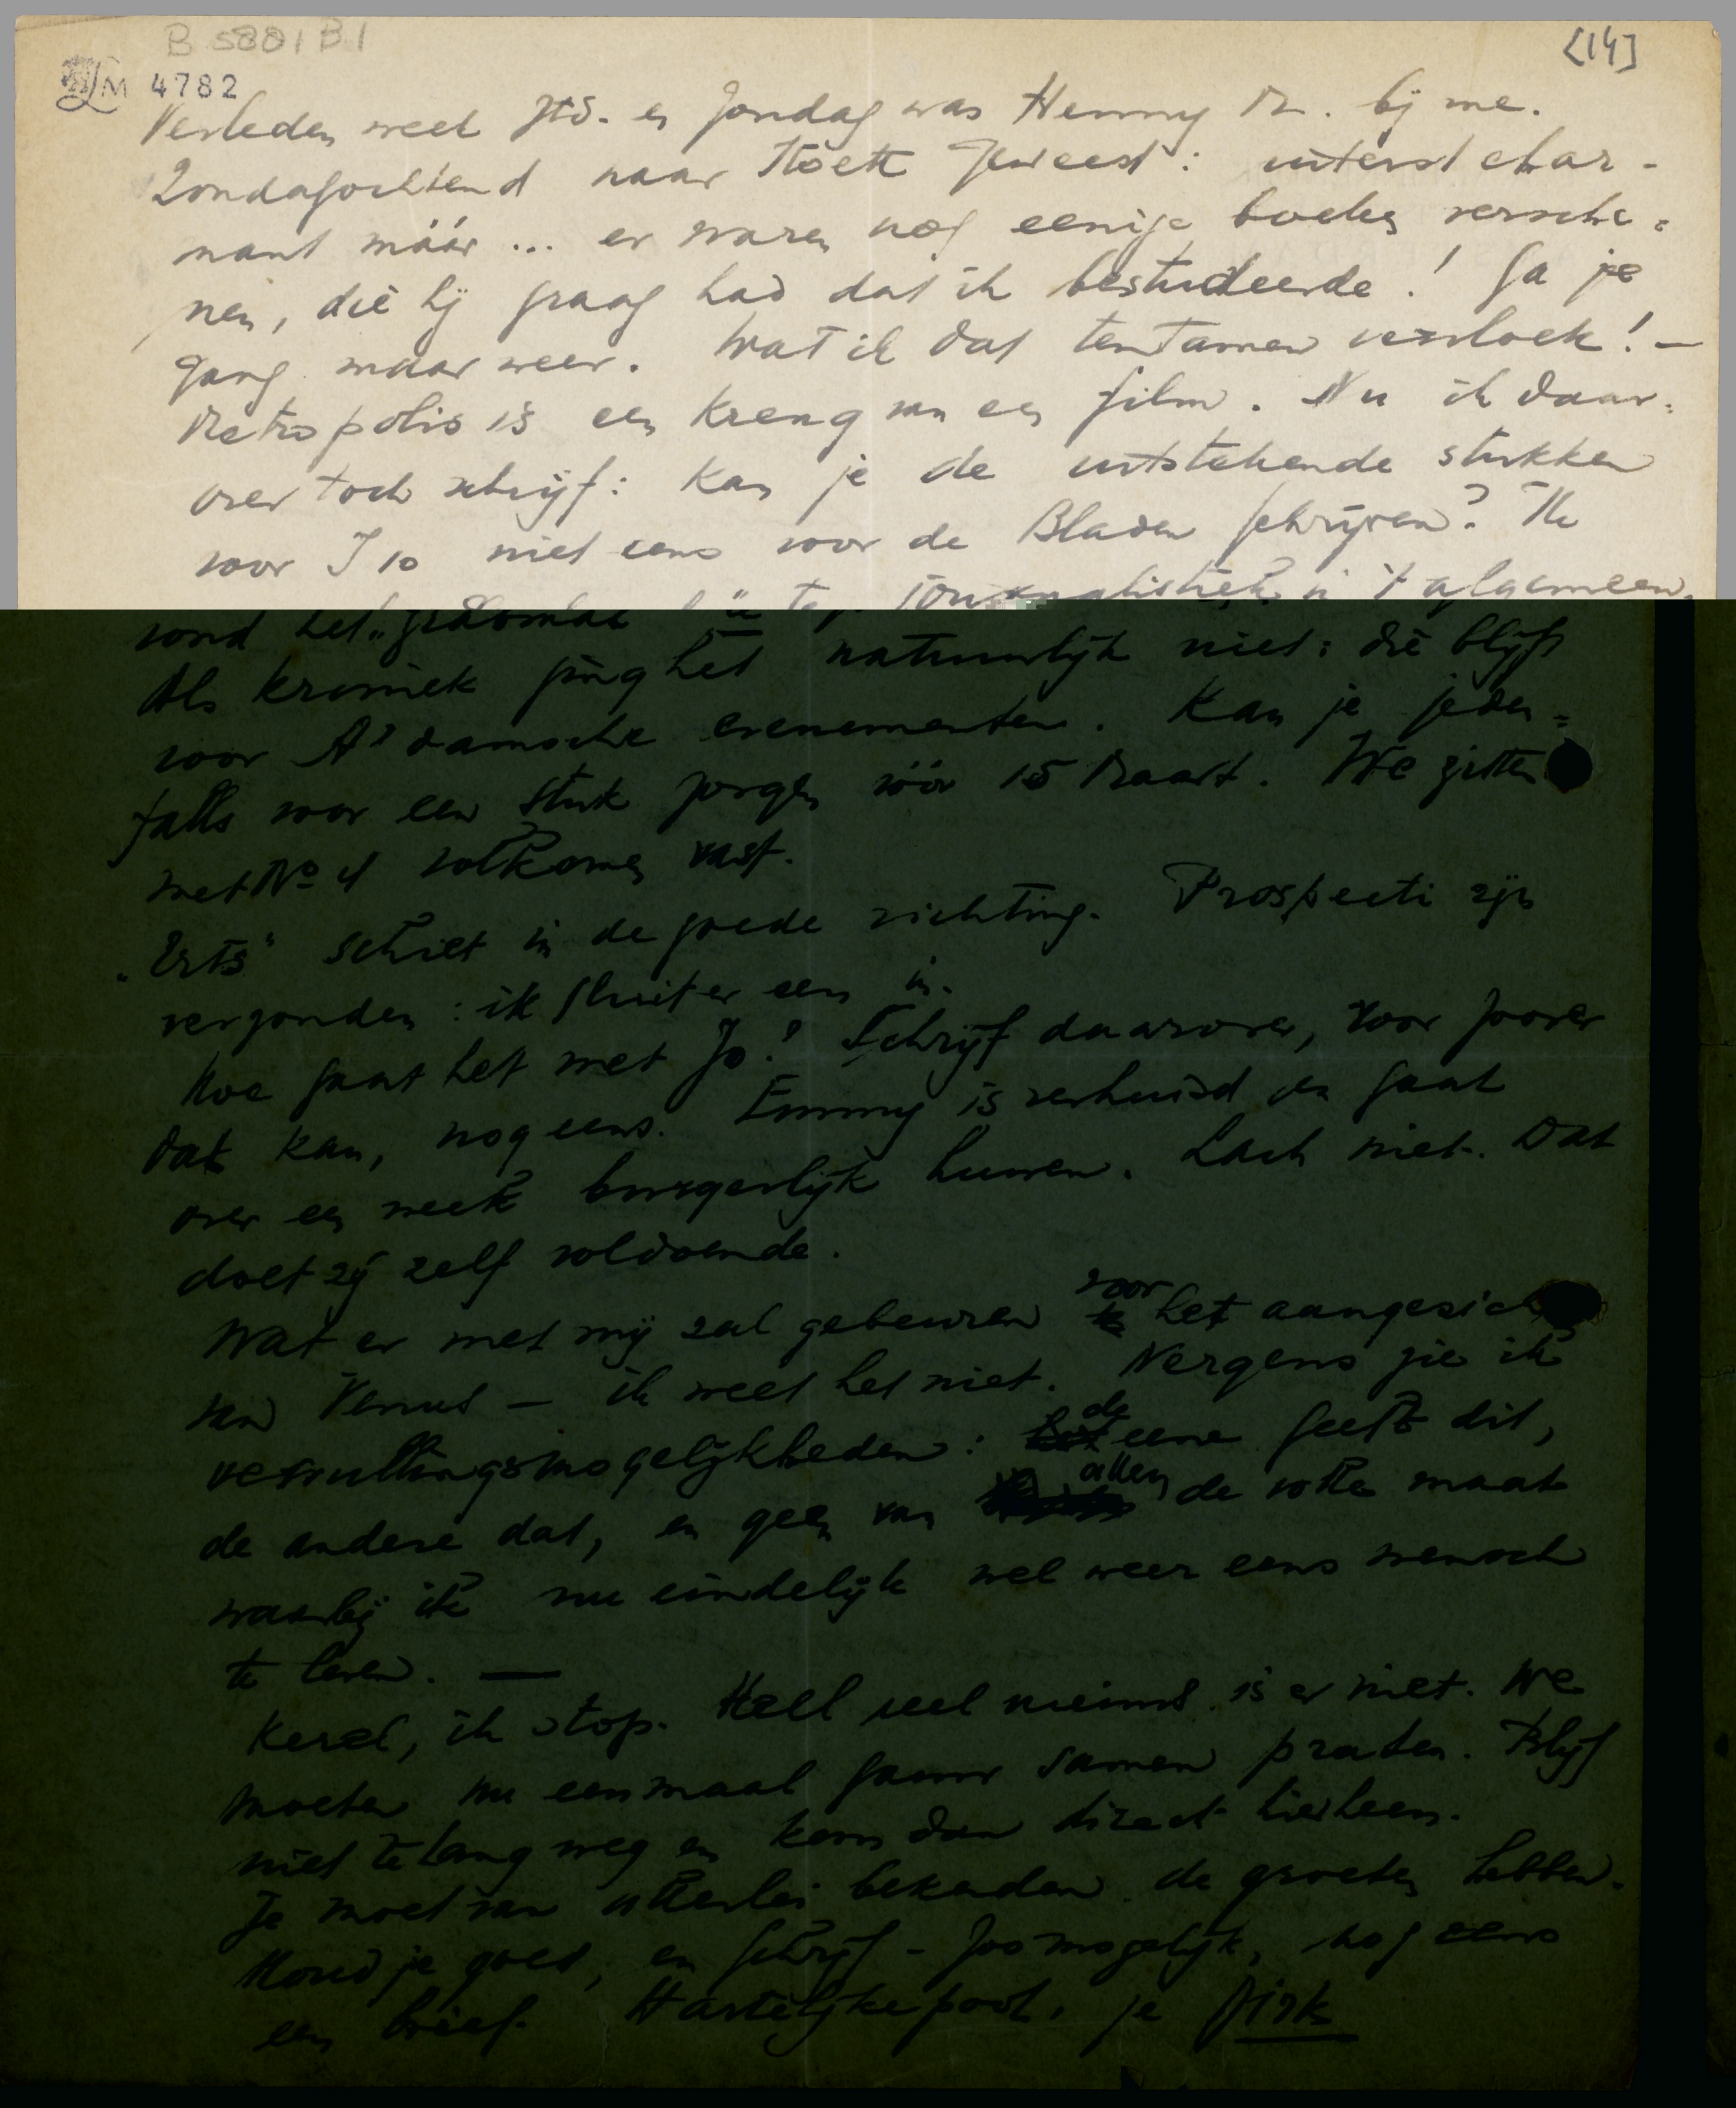 B 5801 B1
[14]
LM 4782
Verleden week Ztd. en Zondag was Henny M. bij me.
Zondagochtend naar Stoett geweest: uiterst char-
mant máár ... er waren nog eenige boeken versche-
nen, die hij graag had dat ik bestudeerde! Ga je
gang maar weer. Wat ik dat tentamen vervloek! —
Metropolis is een kreng van een film. Nu ik daar-
over toch schrijf: kan je de uitstekende stukken
voor I 10 niet eens voor de Bladen schrijven? Ik
vond het journalistiek in 't algemeen.
Als kroniek ging het natuurlijk niet: die blijft
voor A'damsche evenementen. Kan je jeden-
falls voor een stuk zorgen vóór 15 Maart. We zitten
met No 4 volkomen vast.
"Erts" schiet in de goede richting. Prospecti zijn
verzonden: ik sluit er een in.
Hoe gaat het met Jo? Schrijf daarover, voor zoover
dat kan, nog eens. Emmy is verhuisd en gaat
over een week burgerlijk huwen. Lach niet. Dat
doet zij zelf voldoende.
Wat er met mij zal gebeuren voor het aangezicht
van Venus — ik weet het niet. Nergens zie ik
vervullingsmogelijkheden: de eene geeft dit,
de andere dat, en geen van allen de volle maat
waarbij ik nu eindelijk wel weer eens mensch
te leven. —
Kerel, ik stop. Heel veel nieuws is er niet. We
moeten nu eenmaal gauw samen praten. Blijf
niet te lang weg en kom dan direct hierheen.
Je moet van allerlei bekenden de groeten hebben.
Houd je goed, en schrijf - zoo mogelijk, nog eens
een brief. Hartelijke poot, je Dirk